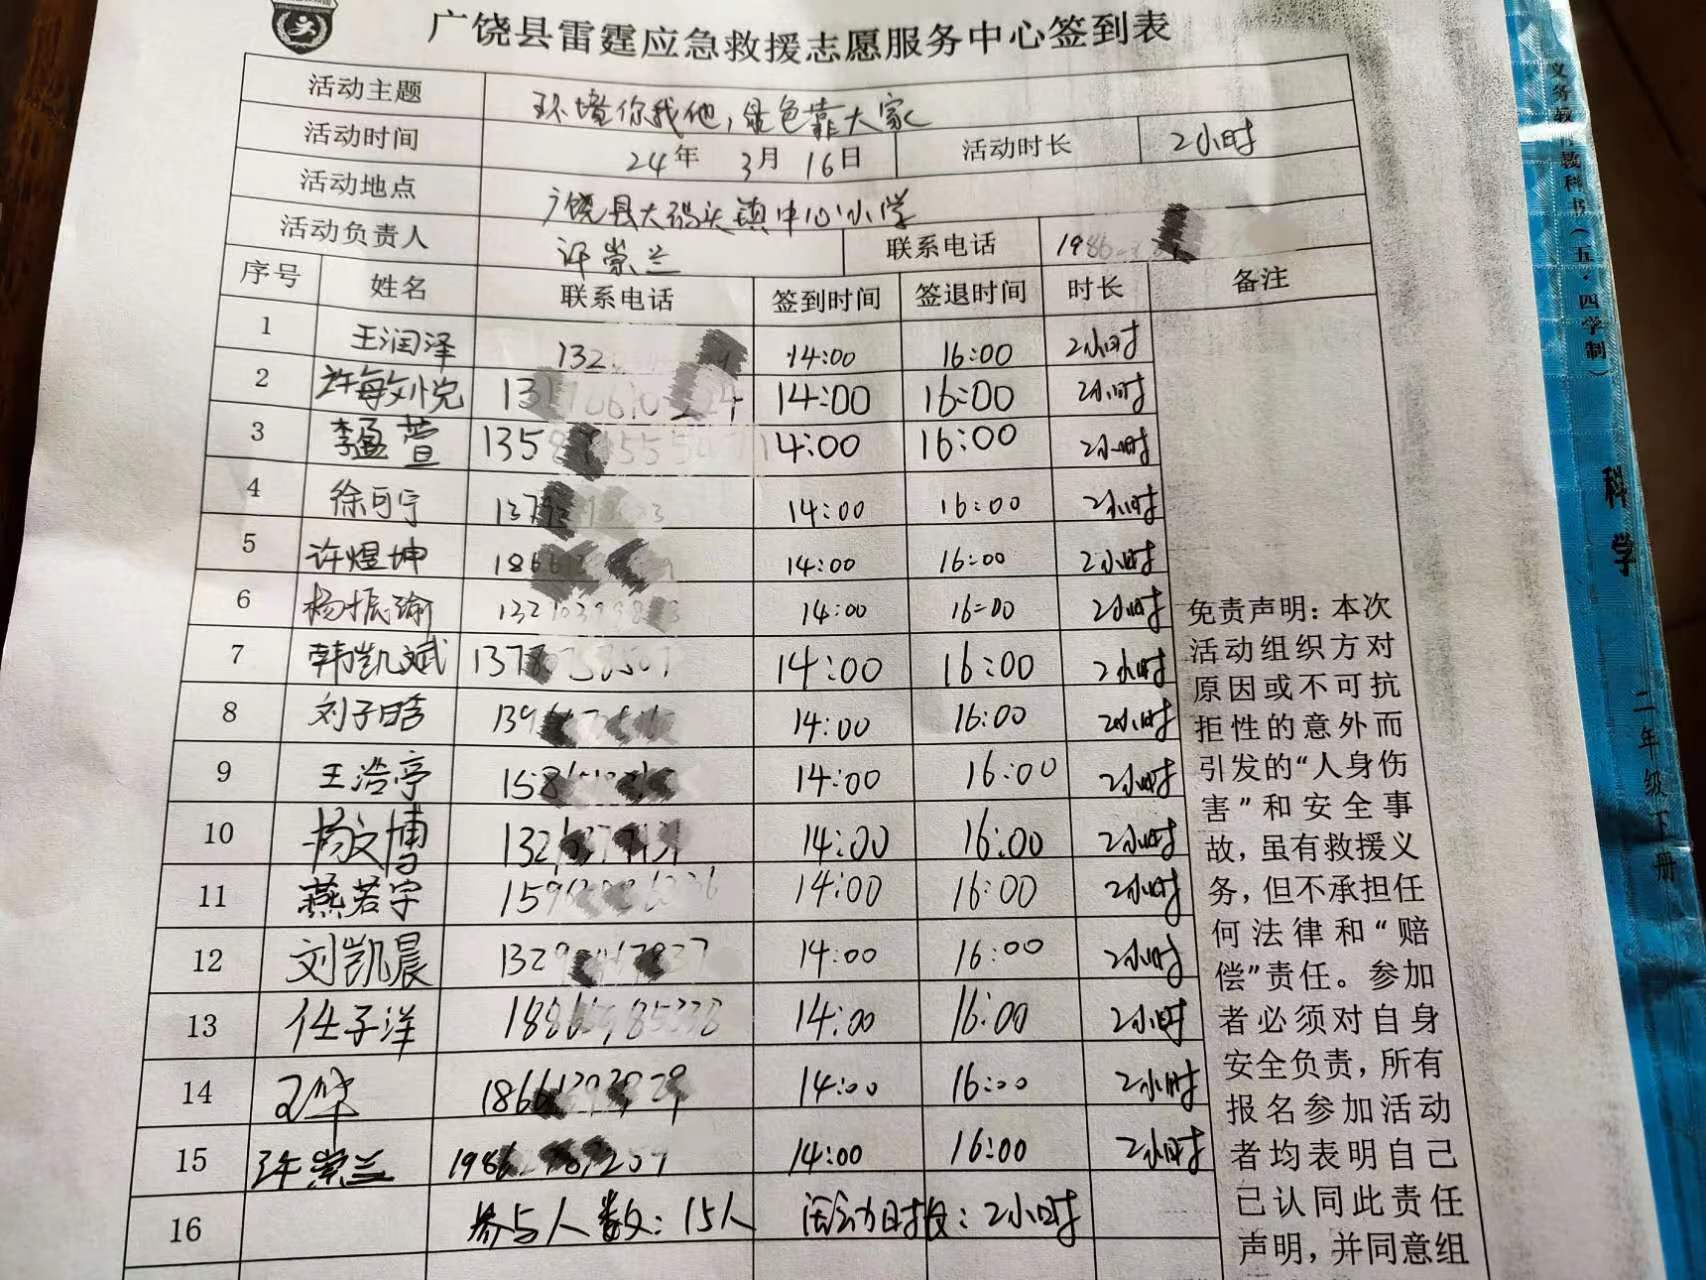 广饶县雷霆应急救援志愿服务中心签到表
活动主题 环境你我他，绿色靠大家
活动时间 24年 3月 16日 活动时长 2小时
活动地点 广饶县大码头镇中心小学
活动负责人 许崇兰 联系电话 1986
序号 姓名 联系电话 签到时间 签退时间 时长 备注
1 王润泽 132 14:00 16:00 2小时
2 许敏悦 13 14:00 16:00 2小时
3 李孟萱 135 14:00 16:00 2小时
4 徐可宁 137 14:00 16:00 2小时
5 许煜坤 186 14:00 16:00 2小时
6 杨振瑜 132 14:00 16:00 2小时
7 韩凯斌 137 14:00 16:00 2小时
8 刘子晗 139 14:00 16:00 2小时
9 王浩亭 158 14:00 16:00 2小时
10 杨文博 132 14:00 16:00 2小时
11 燕若宇 159 14:00 16:00 2小时
12 刘凯晨 132 14:00 16:00 2小时
13 任子洋 188 14:00 16:00 2小时
14 186 14:00 16:00 2小时
15 许崇兰 1986 14:00 16:00 2小时
16 参与人数：15人 活动时段：2小时
免责声明：本次
活动组织方对
原因或不可抗
拒性的意外而
引发的“人身伤
害”和安全事
故，虽有救援义
务，但不承担任
何法律和“赔
偿”责任。参加
者必须对自身
安全负责，所有
报名参加活动
者均表明自己
已认同此责任
声明，并同意组
义务教育教科书（五·四学制）
科学
二年级下册